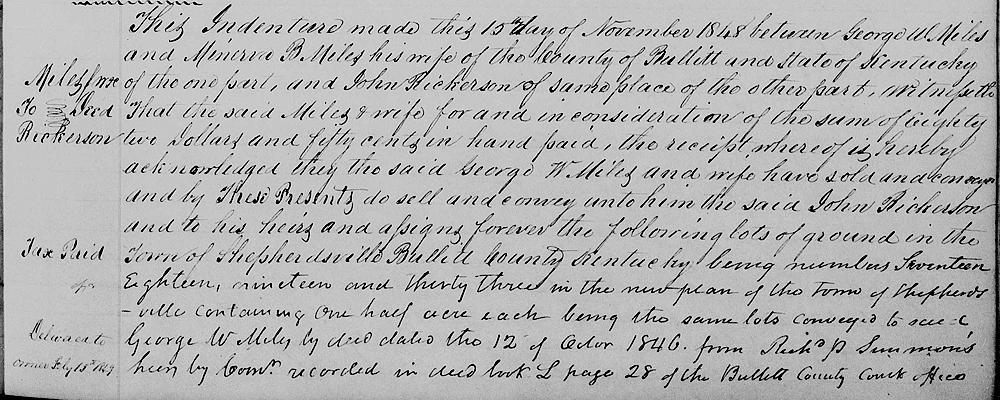 This Indenture made this 15th day of November 1848 between George W Miles
and Minerva B Miles his wife of the County of Bullitt and State of Kentucky
of the one part, and John Rickerson of same place of the other part, Witnesseth
That the said Miles & wife for and in consideration of the sum of Eighty
two Dollars and fifty cents in hand paid, the receipt whereof is hereby
acknowledged they the said George W Miles and wife have sold and conveyed
and by These Presents do sell and convey unto him the said John Rickerson
and to his heirs and assigns forever the following lots of ground in the
Town of Shepherdsville Bullitt County Kentucky being numbers Seventeen
Eighteen, nineteen and thirty three in the new plan of the town of Shepherds
-ville containing one half acre each being the same lots conveyed to said
George W Miles by deed dated the 12 of Octor 1846. from Richd P Simmons
heirs by Comr. recorded in deed book L page 28 of the Bullitt County Court office
Miles & wife
To Deed
Rickerson
Tax Paid
Delivered to
owner Feby 15th 1849